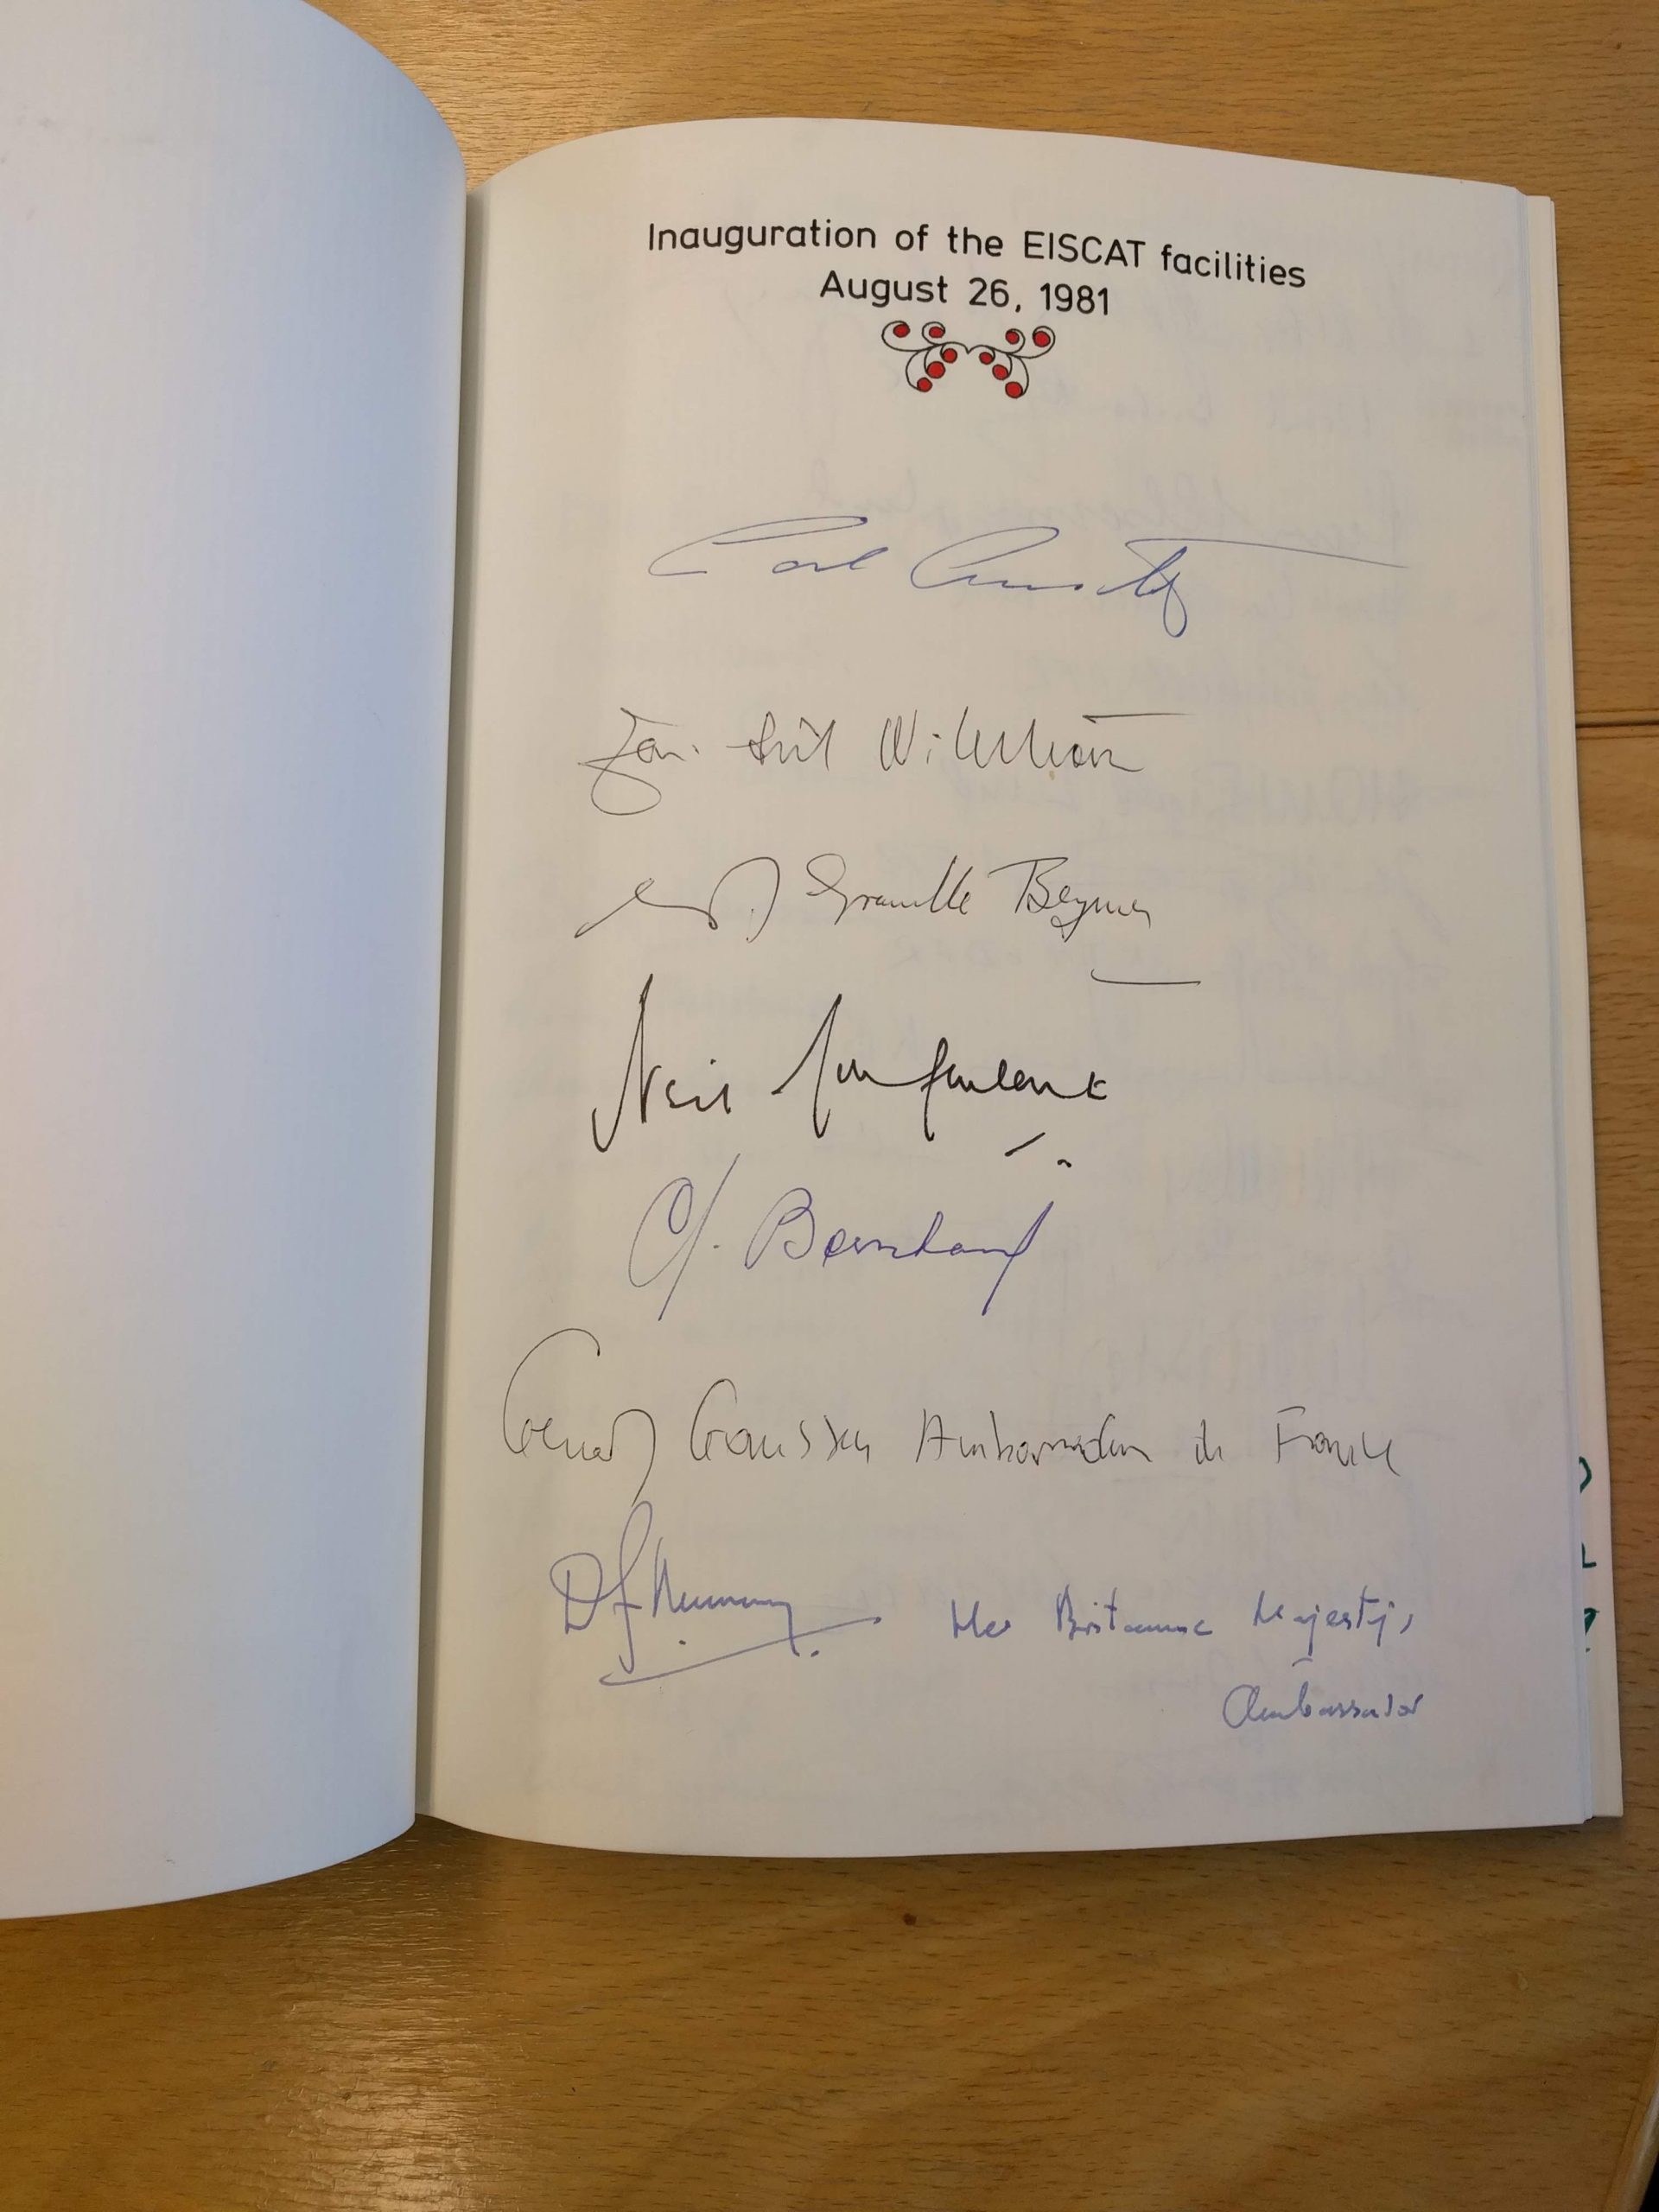 Inauguration of the EISCAT facilities
August 26, 1981
Carl Gustaf
Jan-Erik Wikström
Granville Beynon
Neil Macfarlane
C. Bernhard
Gérard Gaussen Ambassadeur de France
Her Britannic Majesty's
Ambassador